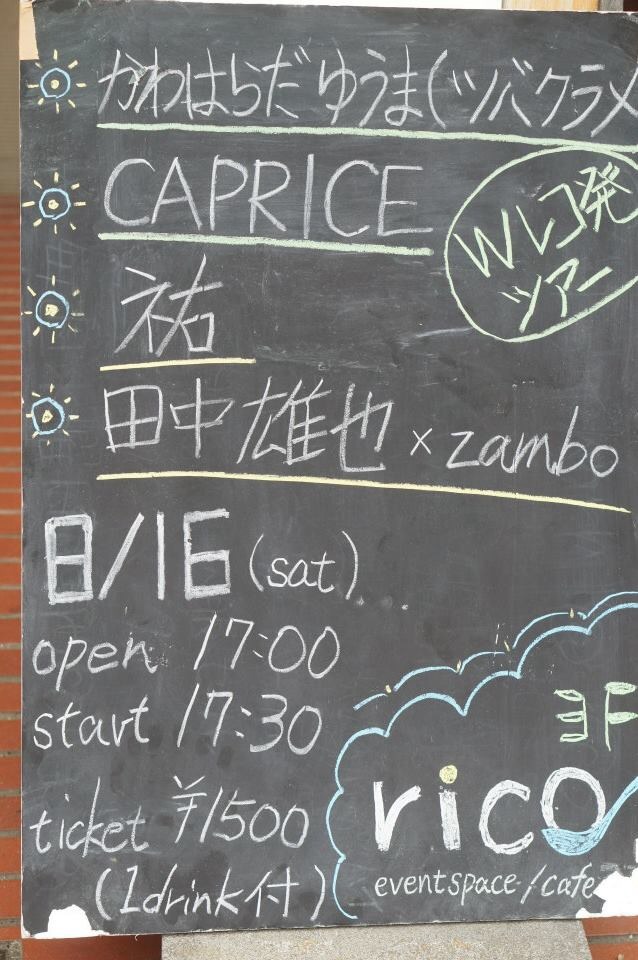 かわはらだゆうま(ツバクラメ
CAPRICE
Wレコ発
ツアー
祐
田中雄也×zambo
8/16(sat)
open 17:00
start 17:30
ticket ¥1500
(1drink付)
ヨF
rico
eventspace/cafe